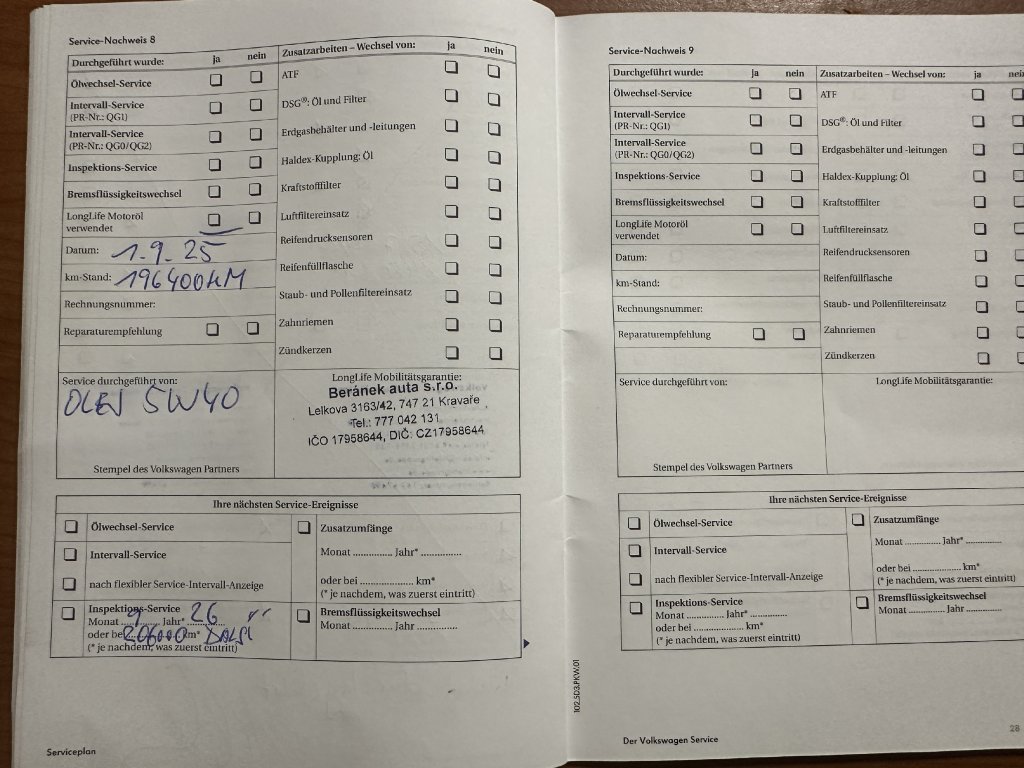 Service-Nachweis 8
Durchgeführt wurde: ja nein
Ölwechsel-Service
Intervall-Service
(PR-Nr.: QG1)
Intervall-Service
(PR-Nr.: QG0/QG2)
Inspektions-Service
Bremsflüssigkeitswechsel
LongLife Motoröl
verwendet
Datum: 1.9.25
km-Stand: 196400KM
Rechnungsnummer:
Reparaturempfehlung
Zusatzarbeiten – Wechsel von: ja nein
ATF
DSG®: Öl und Filter
Erdgasbehälter und -leitungen
Haldex-Kupplung: Öl
Kraftstofffilter
Luftfiltereinsatz
Reifendrucksensoren
Reifenfüllflasche
Staub- und Pollenfiltereinsatz
Zahnriemen
Zündkerzen
Service durchgeführt von:
OLEJ 5W40
Stempel des Volkswagen Partners
LongLife Mobilitätsgarantie:
Beránek auta s.r.o.
Lelkova 3163/42, 747 21 Kravaře
Tel.: 777 042 131
IČO 17958644, DIČ: CZ17958644
Ihre nächsten Service-Ereignisse
Ölwechsel-Service
Intervall-Service
nach flexibler Service-Intervall-Anzeige
Inspektions-Service
Monat 9 Jahr* 26
oder bei 206000 km* DALŠÍ
(* je nachdem, was zuerst eintritt)
Zusatzumfänge
Monat ............. Jahr* .............
oder bei .................. km*
(* je nachdem, was zuerst eintritt)
Bremsflüssigkeitswechsel
Monat ............. Jahr .............
Serviceplan
102.5D3.PKW.01
Service-Nachweis 9
Durchgeführt wurde: ja nein
Ölwechsel-Service
Intervall-Service
(PR-Nr.: QG1)
Intervall-Service
(PR-Nr.: QG0/QG2)
Inspektions-Service
Bremsflüssigkeitswechsel
LongLife Motoröl
verwendet
Datum:
km-Stand:
Rechnungsnummer:
Reparaturempfehlung
Zusatzarbeiten – Wechsel von: ja nein
ATF
DSG®: Öl und Filter
Erdgasbehälter und -leitungen
Haldex-Kupplung: Öl
Kraftstofffilter
Luftfiltereinsatz
Reifendrucksensoren
Reifenfüllflasche
Staub- und Pollenfiltereinsatz
Zahnriemen
Zündkerzen
Service durchgeführt von:
Stempel des Volkswagen Partners
LongLife Mobilitätsgarantie:
Ihre nächsten Service-Ereignisse
Ölwechsel-Service
Intervall-Service
nach flexibler Service-Intervall-Anzeige
Inspektions-Service
Monat ............. Jahr* .............
oder bei .................. km*
(* je nachdem, was zuerst eintritt)
Zusatzumfänge
Monat ............. Jahr* .............
oder bei .................. km*
(* je nachdem, was zuerst eintritt)
Bremsflüssigkeitswechsel
Monat ............. Jahr .............
Der Volkswagen Service
28